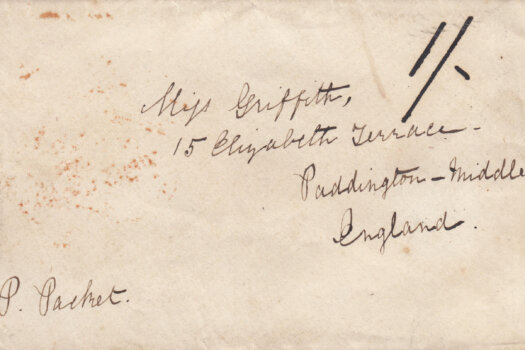 1/-
Miss Griffith,
15 Elizabeth Terrace -
Paddington - Middle
England.
P. Packet.